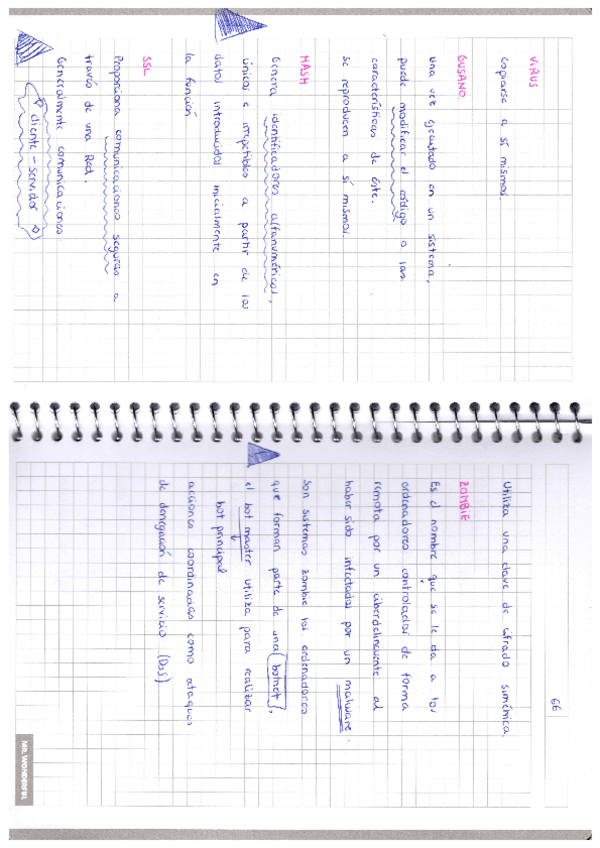 VIRUS
copiarse a sí mismos.
GUSANO
una vez ejecutado en un sistema,
puede modificar el código o las
características de éste.
se reproducen a sí mismos.
HASH
Genera identificadores alfanuméricos,
únicos e irrepetibles a partir de los
datos introducidos inicialmente en
la función
SSL
Proporciona comunicaciones seguras a
través de una Red.
Generalmente comunicaciones
cliente - servidor
66
Utiliza una clave de cifrado simémica.
ZOMBIE
Es el nombre que se le da a los
ordenadores controlados de forma
remota por un ciberdelincuente al
haber sido infectados por un malware.
Son sistemas zombie los ordenadores
que forman parte de una botnet,
el bot master utiliza para realizar
bot principal
acciones coordinadas como ataques
de denegación de servicio (DoS)
MR. WONDERFUL